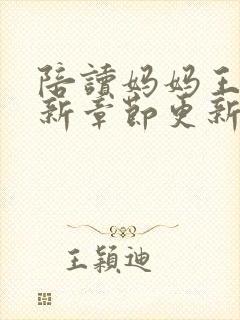 陪讀妈妈王
新章節更新
王穎迪